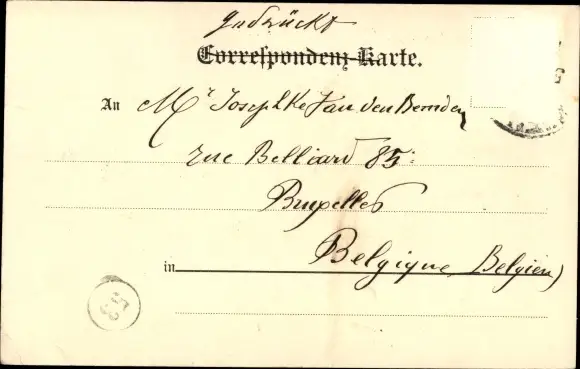 gedrückt
Correspondenz-Karte.
An Mr Josephke Van den Bemden
rue Belliard 85:
Bruxelles
in Belgique, Belgien)
53